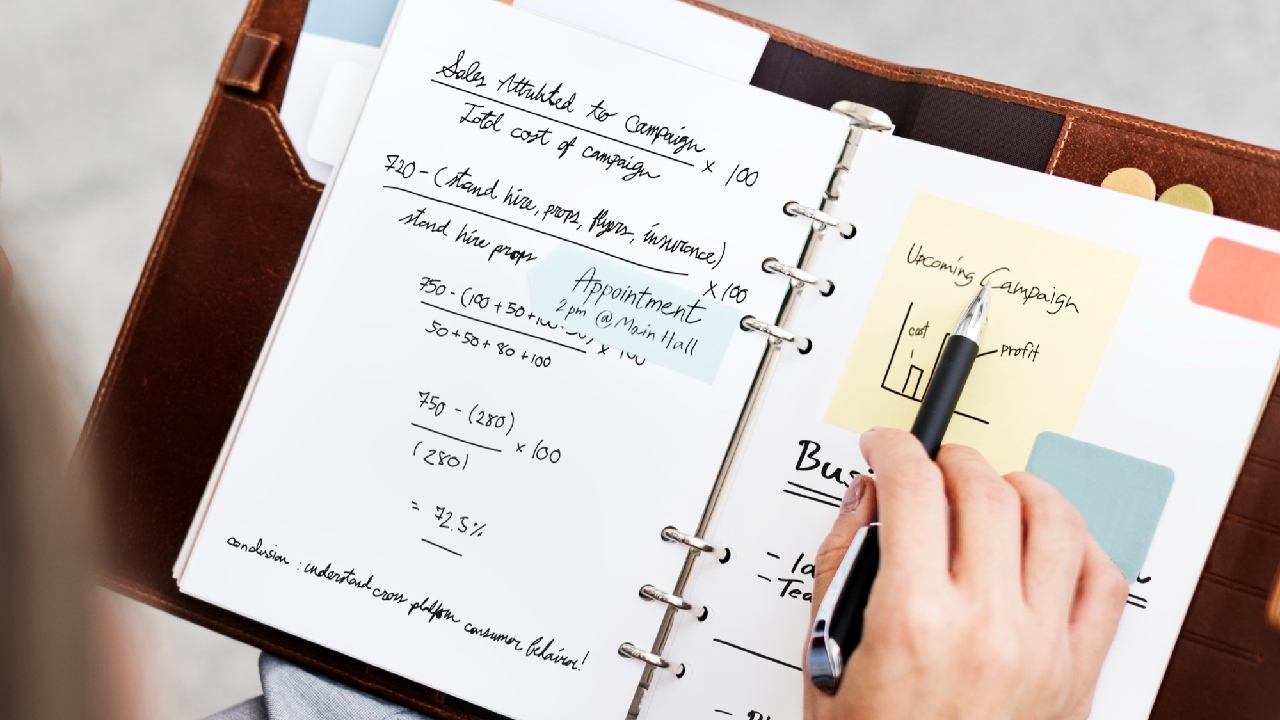 Sales Attributed to Campaign
Total cost of campaign
x 100
720 - (stand hire, props, flyers, insurance)
stand hire props
x 100
Appointment
2pm @ Main Hall
750 - (100 + 50 +
50 + 50 + 80 + 100
x 100
750 - (280)
(280)
x 100
= 72.5%
conclusion : understand cross platform consumer behavior!
Upcoming Campaign
cost
profit